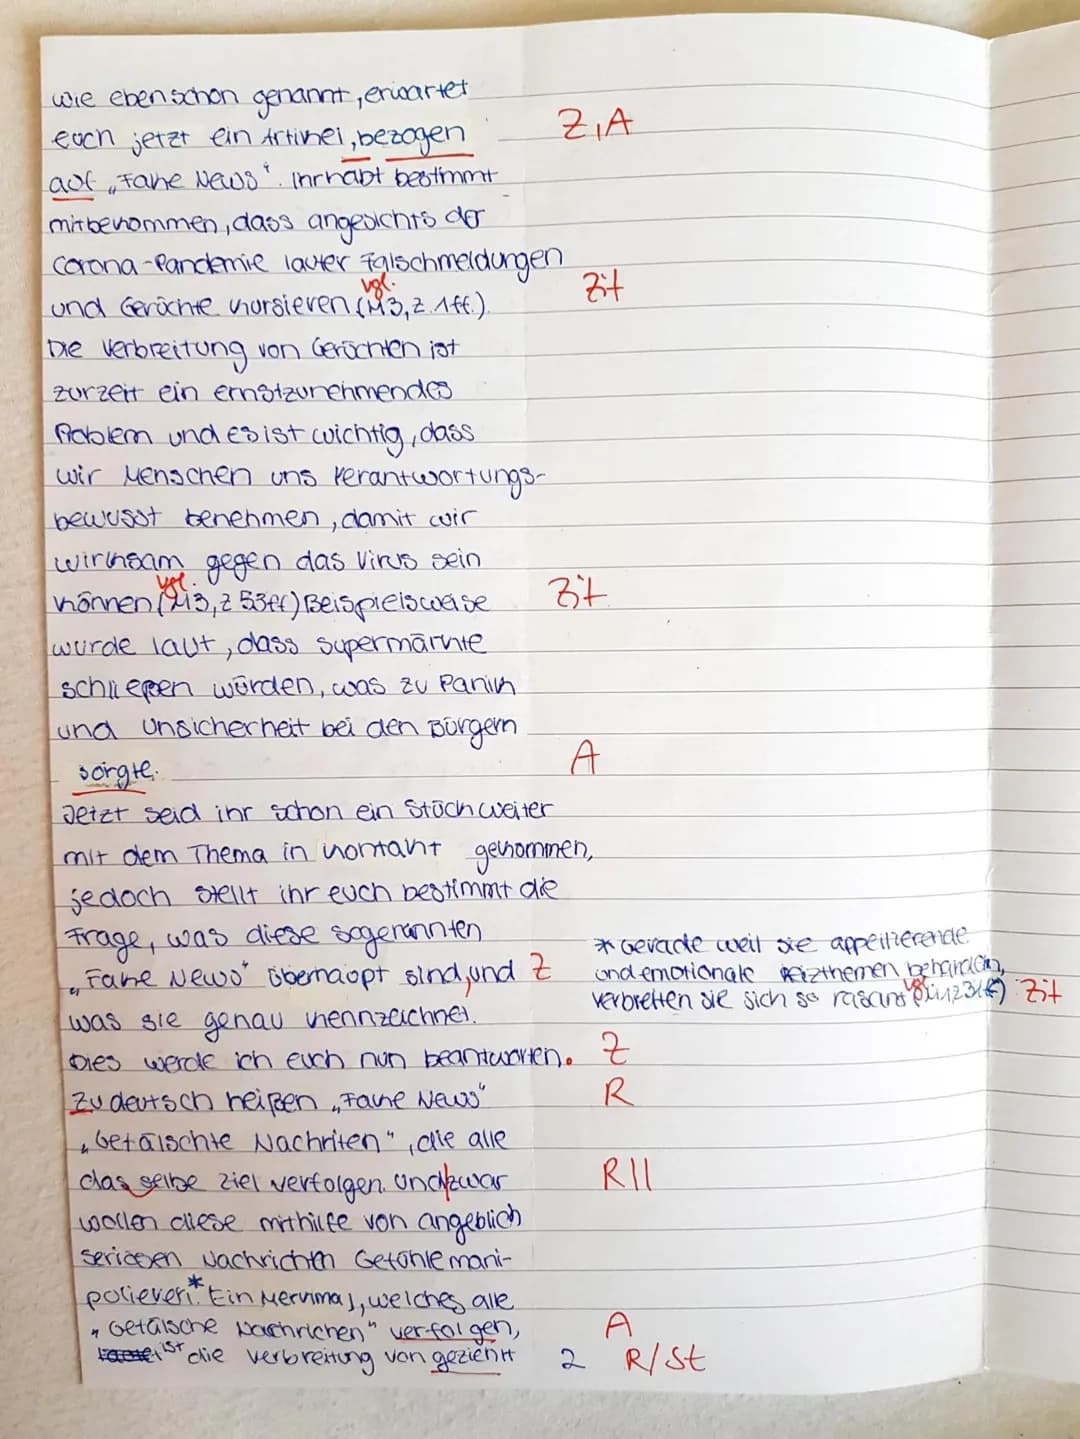 wie eben schon genannt, erwartet
euch jetzt ein Artikel, bezogen
Z, A
auf „Fake News". Ihr habt bestimmt
mitbekommen, dass angesichts der
Corona-Pandemie lauter Falschmeldungen
vgl.
und Gerüchte kursieren (M3, Z. 1ff.).
Zit
Die Verbreitung von Gerüchten ist
zurzeit ein ernstzunehmendes
Problem und es ist wichtig, dass
wir Menschen uns verantwortungs-
bewusst benehmen, damit wir
wirksam gegen das Virus sein
vgl.
können (M3, Z 53ff) Beispielsweise
Zit
wurde laut, dass Supermärkte
schließen würden, was zu Panik
und Unsicherheit bei den Bürgern
sorgte.
A
Jetzt seid ihr schon ein Stück weiter
mit dem Thema in kontakt gekommen,
jedoch stellt ihr euch bestimmt die
Frage, was diese sogenannten
„Fake News" überhaupt sind, und
Z
was sie genau kennzeichnet.
Dies werde ich euch nun beantworten.
Z
* Gerade weil sie appellierende
und emotionale Reizthemen behandeln,
verbreiten sie sich so rasant
vgl.
Zit
Zu deutsch heißen „Fake News"
R
„Gefälschte Nachriten", die alle
das selbe Ziel verfolgen. Und zwar
R||
wollen diese mithilfe von angeblich
seriösen Nachrichten Gefühle mani-
polieren.* Ein Merkmal, welches alle
„Gefälsche Nachrichen" verfolgen,
A
ist die Verbreitung von gezielt
2
R/St